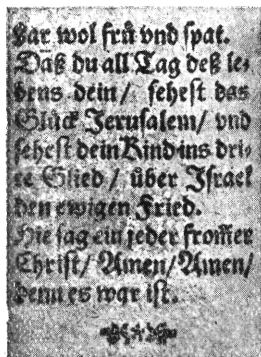 gar wol frů vnd spat.
Daß du all Tag deß le⸗
bens dein/ sehest das
Glück Jerusalem/ vnd
sehest dein Kind ins dri⸗
te Glied/ über Israel
den ewigen Fried.
Hie sag ein jeder from̃er
Christ/ Amen/ Amen/
denn es war ist.